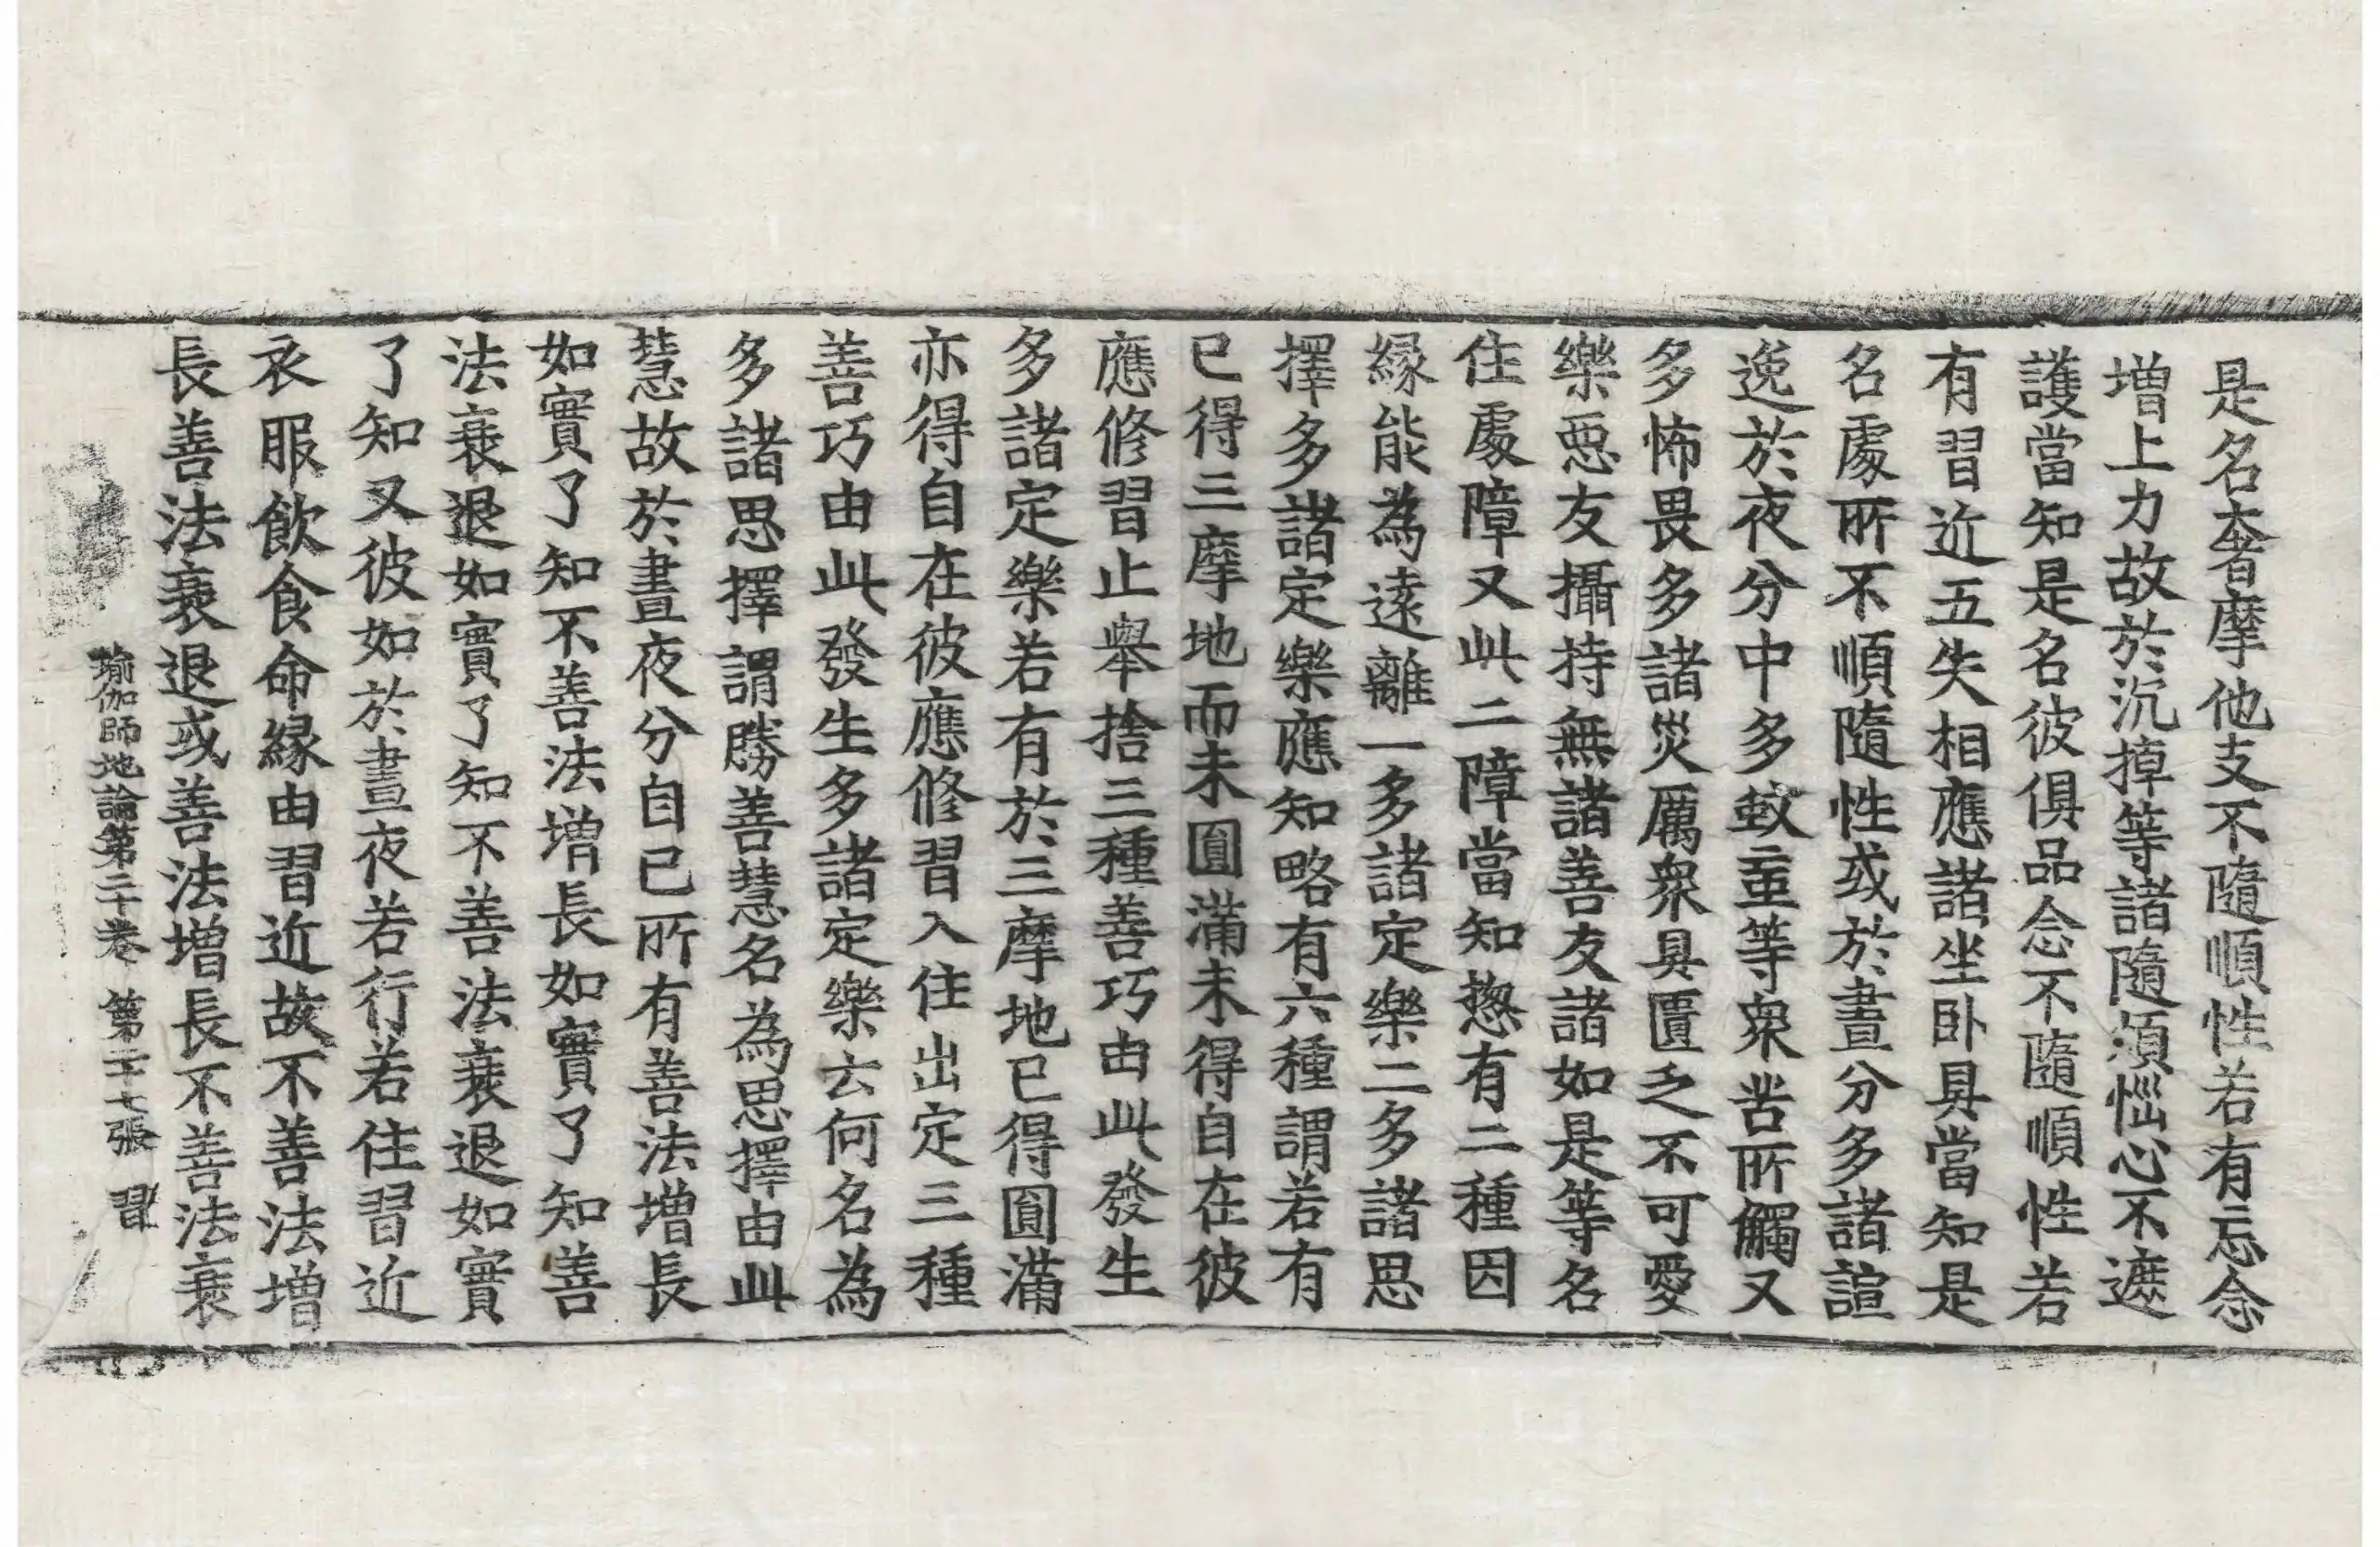 是名奢摩他支不隨順性若有忘念
增上力故於沉掉等諸隨煩惱心不遮
護當知是名彼俱品念不隨順性若
有習近五失相應諸坐卧具當知是
名處所不順隨性或於晝分多諸諠
逸於夜分中多蚊䖟等衆苦所觸又
多怖畏多諸災厲衆具匱乏不可愛
樂惡友攝持無諸善友諸如是等名
住處障又此二障當知揔有二種因
緣能為遠離一多諸定樂二多諸思
擇多諸定樂應知略有六種謂若有
已得三摩地而未圓滿未得自在彼
應修習止舉捨三種善巧由此發生
多諸定樂若有於三摩地已得圓滿
亦得自在彼應修習入住出定三種
善巧由此發生多諸定樂云何名為
多諸思擇謂勝善慧名為思擇由此
慧故於晝夜分自已所有善法增長
如實了知不善法增長如實了知善
法衰退如實了知不善法衰退如實
了知又彼如於晝夜若行若住習近
衣服飲食命緣由習近故不善法增
長善法衰退或善法增長不善法衰
瑜伽師地論第二十卷 第二十七張 習